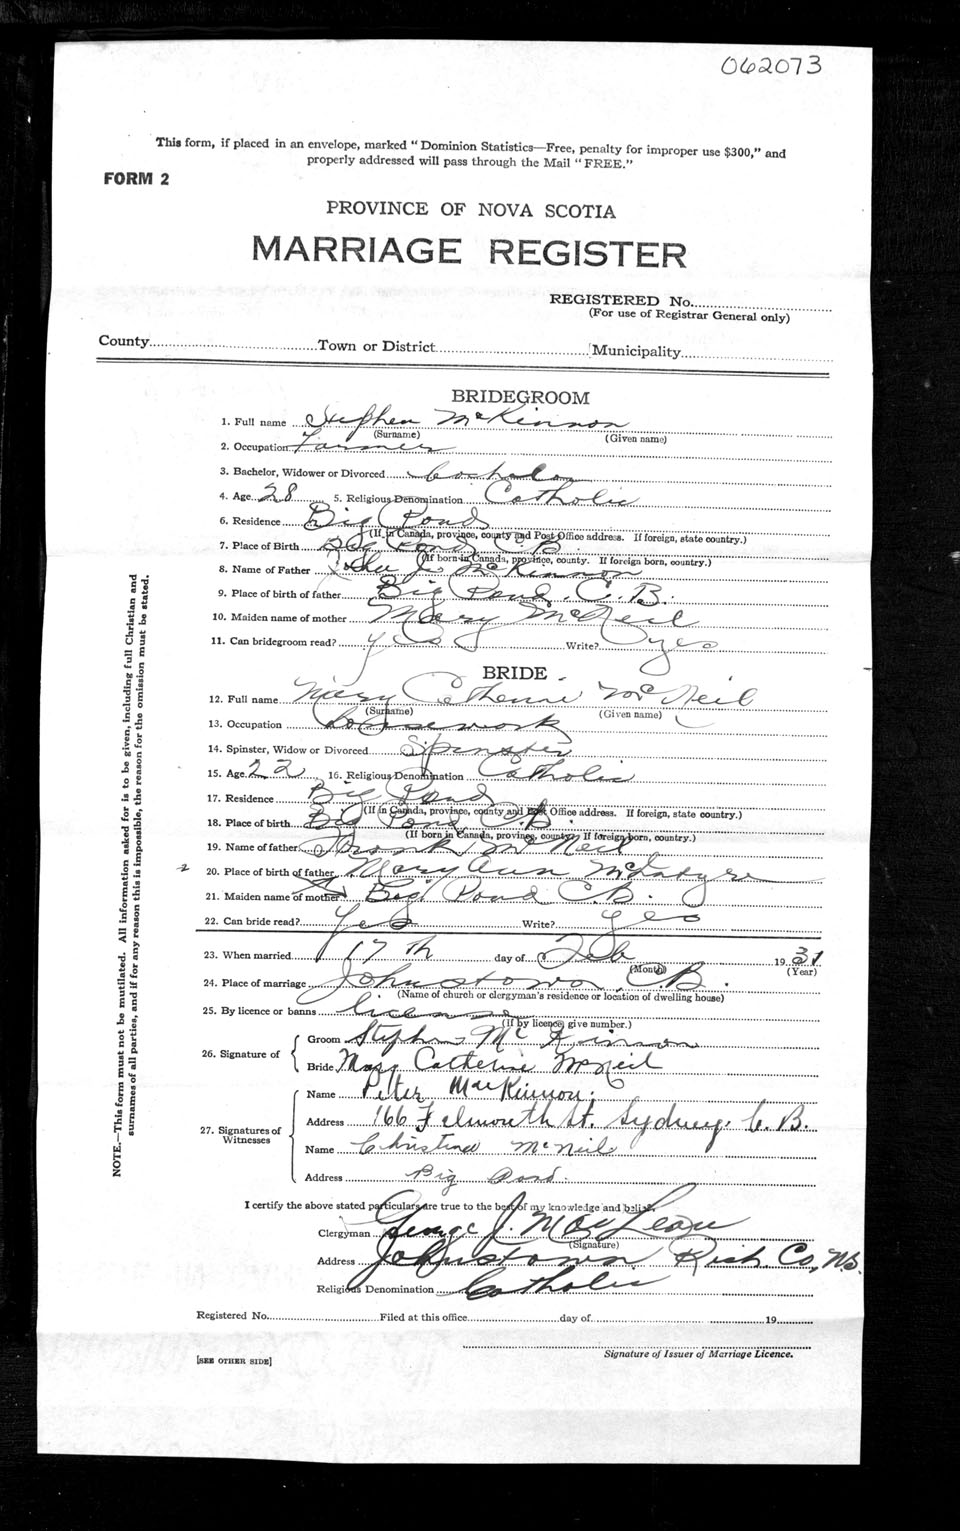 062073
This form, if placed in an envelope, marked "Dominion Statistics—Free, penalty for improper use $300," and
properly addressed will pass through the Mail "FREE."
FORM 2
PROVINCE OF NOVA SCOTIA
MARRIAGE REGISTER
REGISTERED No.
(For use of Registrar General only)
County Town or District Municipality
BRIDEGROOM
1. Full name Stephen McKinnon
(Surname) (Given name)
2. Occupation Farmer
3. Bachelor, Widower or Divorced bachelor
4. Age 28 5. Religious Denomination Catholic
6. Residence Big Pond
(If in Canada, province, county and Post Office address. If foreign, state country.)
7. Place of Birth Big Pond C.B.
(If born in Canada, province, county. If foreign born, country.)
8. Name of Father J. McKinnon
9. Place of birth of father Big Pond, C.B.
10. Maiden name of mother Mary McNeil
11. Can bridegroom read? yes Write? yes
BRIDE
12. Full name Mary Catherine McNeil
(Surname) (Given name)
13. Occupation housework
14. Spinster, Widow or Divorced Spinster
15. Age 22 16. Religious Denomination Catholic
17. Residence Big Pond
(If in Canada, province, county and Post Office address. If foreign, state country.)
18. Place of birth Big Pond C.B
(If born in Canada, province, county. If foreign born, country.)
19. Name of father Frank McNeil
20. Place of birth of father Mary Ann McIntyre
21. Maiden name of mother Big Pond C.B.
22. Can bride read? Yes Write? yes
23. When married 17th day of Feb 1931
(Month) (Year)
24. Place of marriage Johnstown, C.B.
(Name of church or clergyman's residence or location of dwelling house)
25. By licence or banns license
(If by licence, give number.)
26. Signature of Groom Stephen McKinnon
Bride Mary Catherine McNeil
27. Signatures of Witnesses Name Peter MacKinnon
Address 166 Falmouth St. Sydney C.B.
Name Christina McNeil
Address Big Pond.
I certify the above stated particulars are true to the best of my knowledge and belief.
Clergyman George J. MacLean
(Signature)
Address Johnstown Rich. Co., N.S.
Religious Denomination Catholic
Registered No. Filed at this office day of 19
Signature of Issuer of Marriage Licence.
[SEE OTHER SIDE]
NOTE.—This form must not be mutilated. All information asked for is to be given, including full Christian and
surnames of all parties, and if for any reason this is impossible, the reason for the omission must be stated.